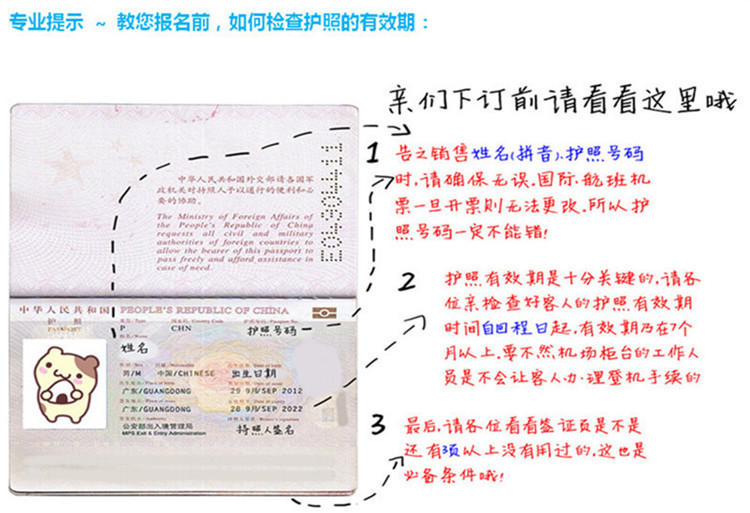 专业提示 ~ 教您报名前，如何检查护照的有效期：
亲们下订前请看看这里哦
中华人民共和国外交部请各国军
政机关对持照人予以通行的便利和必
要的协助。
The Ministry of Foreign Affairs of
the People's Republic of China
requests all civil and military
authorities of foreign countries to
allow the bearer of this passport to
pass freely and afford assistance in
case of need.
中华人民共和国 PEOPLE'S REPUBLIC OF CHINA
护照
PASSPORT
P CHN 护照号码
姓名
男/M 中国/CHINESE 出生日期
广东/GUANGDONG 29 9月/SEP 2012
广东/GUANGDONG 28 9月/SEP 2022
公安部出入境管理局
MPS Exit & Entry Administration
持照人签名
1 告之销售姓名(拼音)、护照号码
时，请确保无误。国际、航班机
票一旦开票则无法更改，所以护
照号码一定不能错!
2 护照有效期是十分关键的，请各
位亲检查好客人的护照有效期
时间自回程日起，有效期及在7个
月以上，要不然，机场柜台的工作人
员是不会让客人办理登机手续的
3 最后，请各位看看签证页是不是
还有3项以上没有用过的，这也是
必备条件哦!